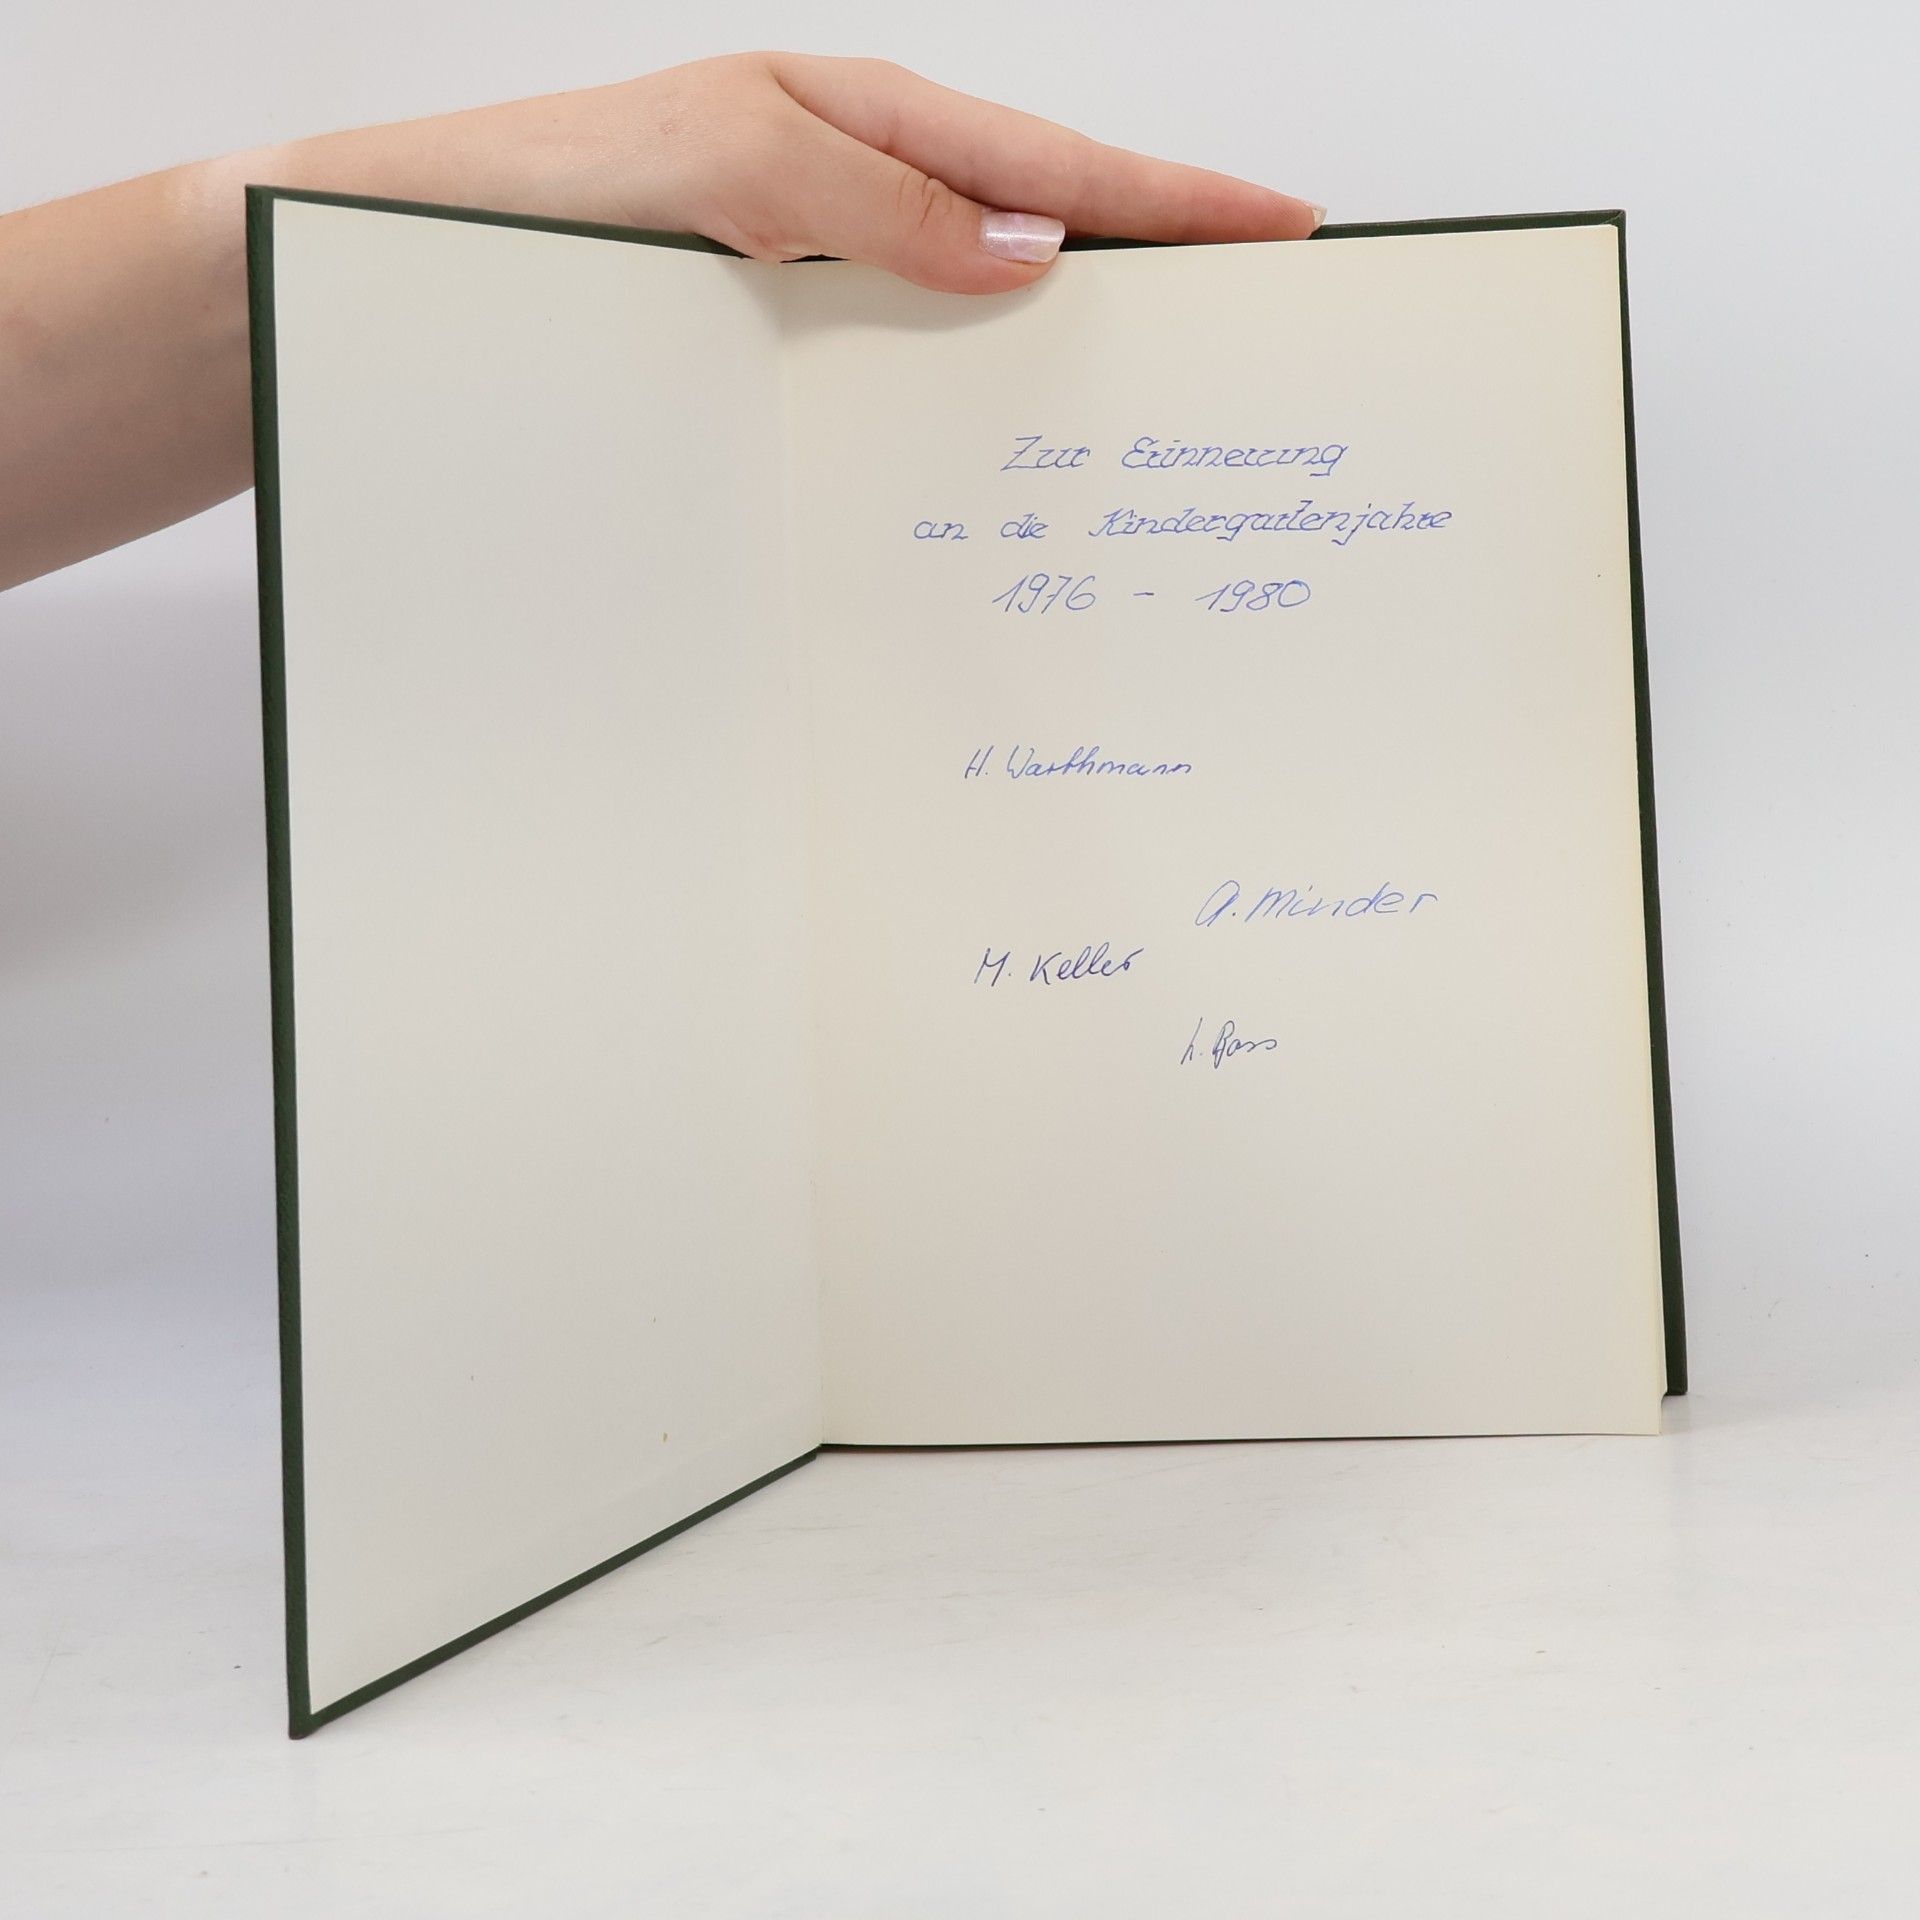 Zur Erinnerung
an die Kindergartenjahre
1976 - 1980
H. Warthmann
A. Minder
M. Keller
L. Bass